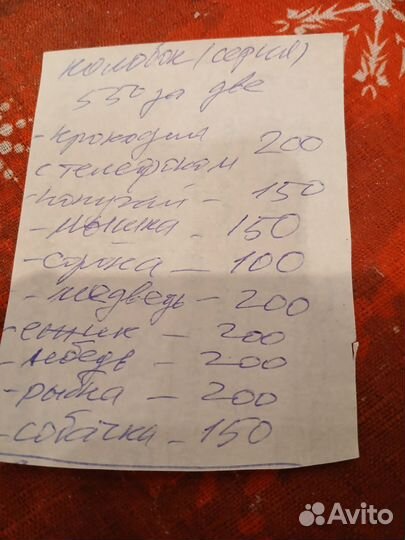 колобок (серия)
550 за две
- крокодил 200
с телефоном
- попугай - 150
- мышка - 150
- сойка - 100
- медведь - 200
- ёжик - 200
- лебедь - 200
- рыбка - 200
- собачка - 150
Avito